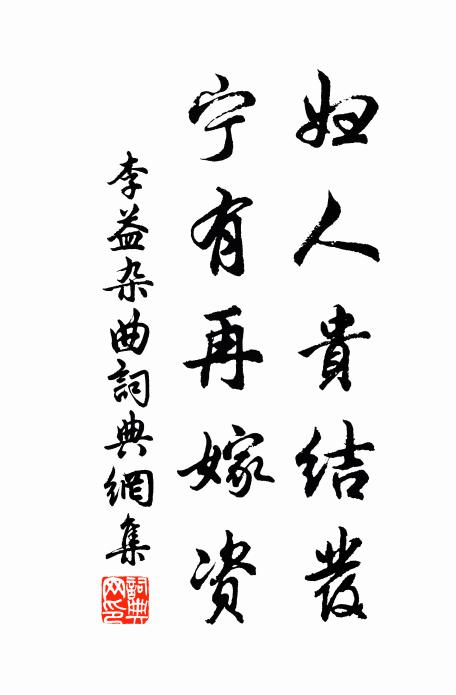 妇人貴结發
宁有再嫁资
李益杂曲詞典網集
詞典网印